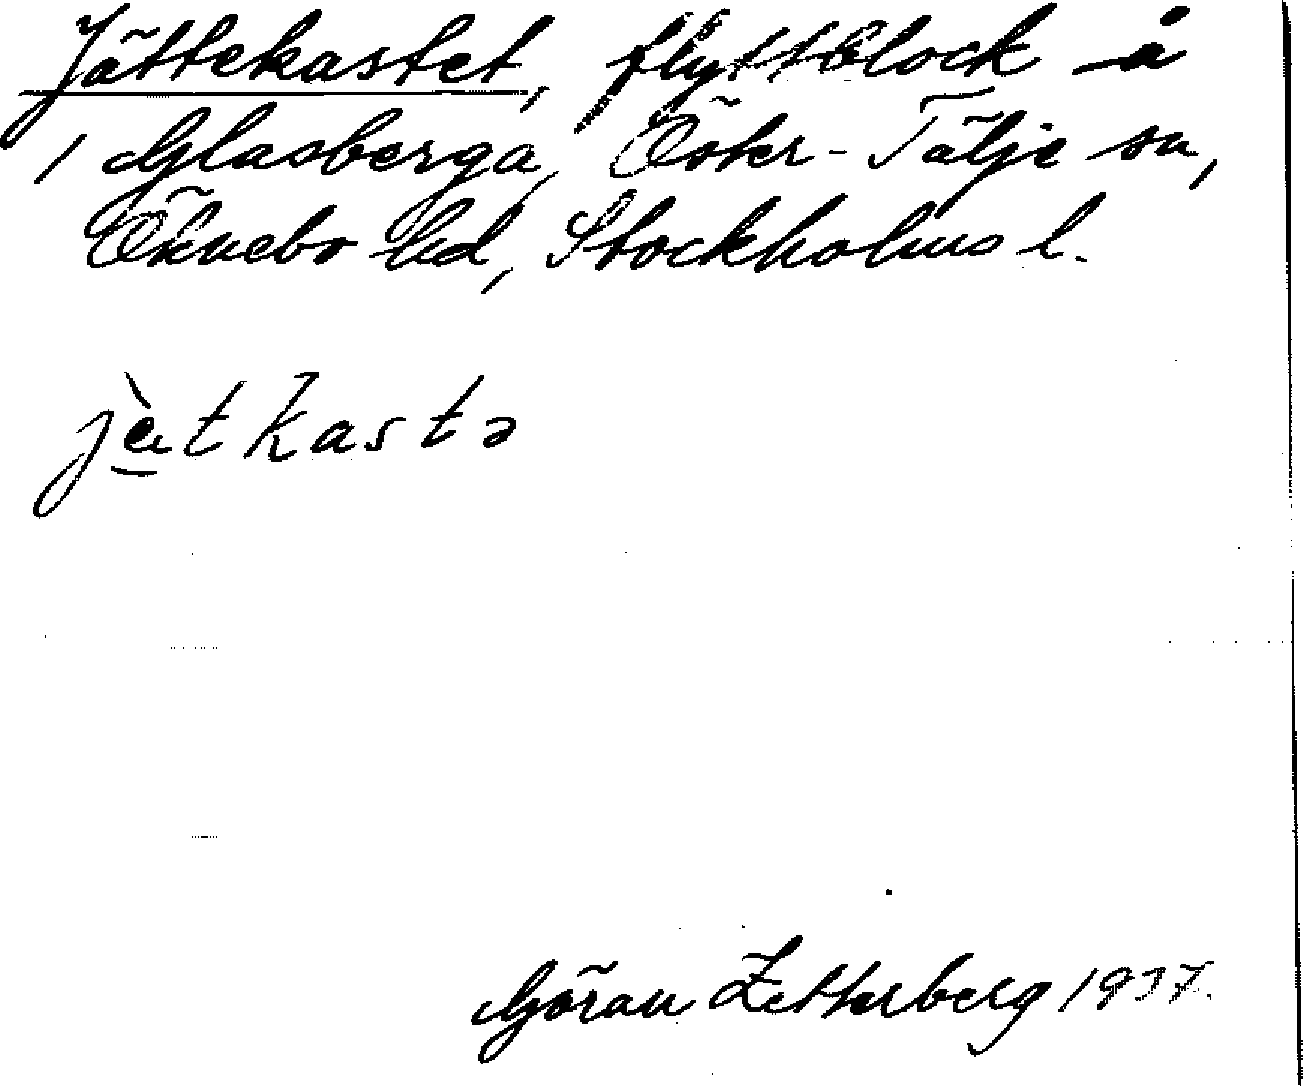 Jättekastet, flyttblock å
1 Glasberga, Öster-Tälje sn,
Öknebo hd, Stockholms l.
jàtkastə
Göran Zetterberg 1937.